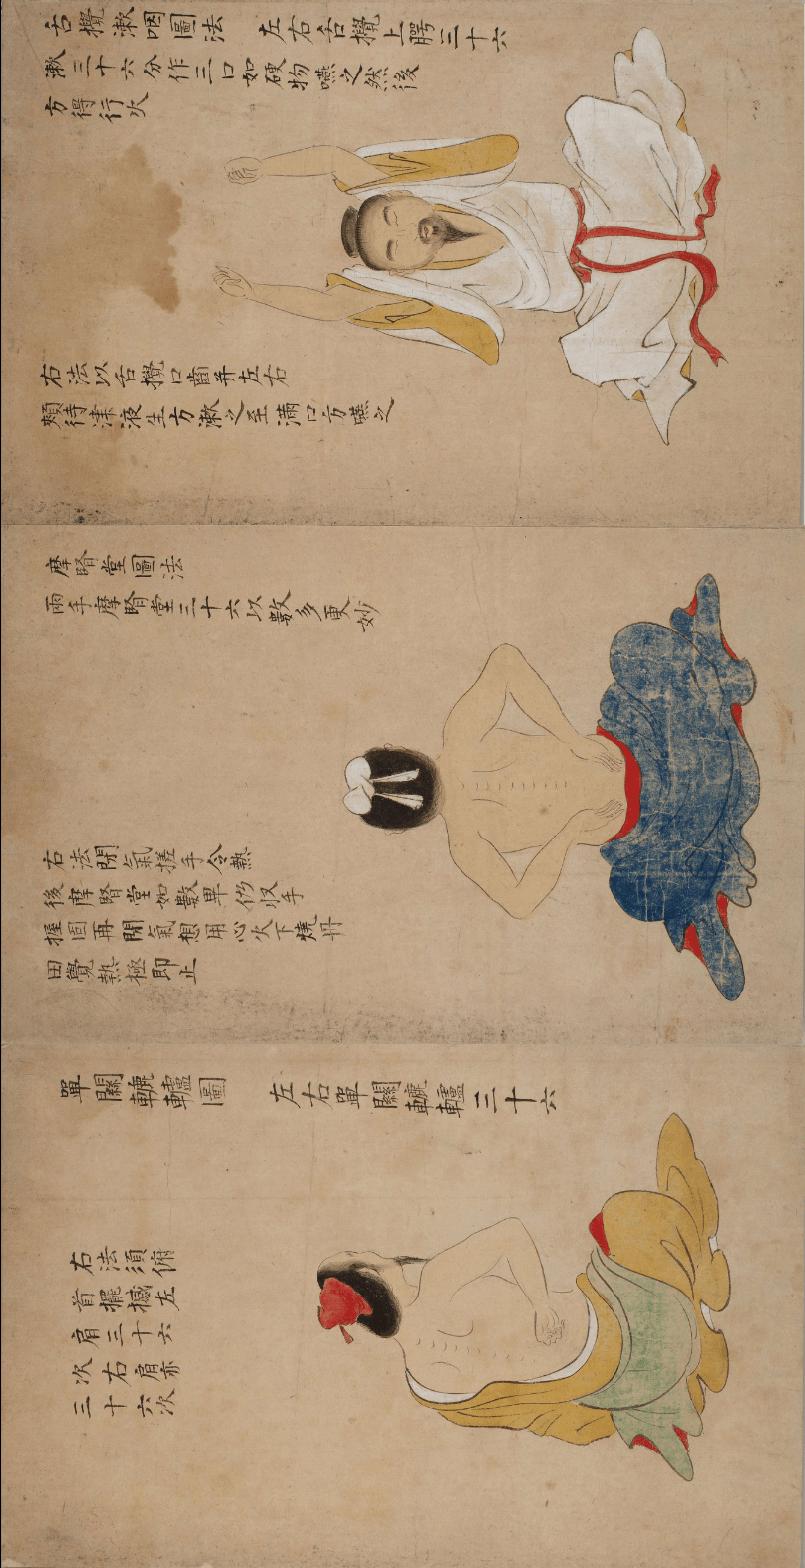 舌攪漱咽圖法
左右舌攪上腭三十六
漱三十六分作三口如硬物嚥之然後
方得行火
右法以舌攪口齒并左右
頰待津液生方漱之至滿口方嚥之
摩腎堂圖法
兩手摩腎堂三十六以數多更妙
右法閉氣搓手令熱
後摩腎堂如數畢仍収手
握固再閉氣想用心火下燒丹
田覺熱極即止
單關轆轤圖
左右單關轆轤三十六
右法須俯
首擺撼左
肩三十六
次右肩亦
三十六次